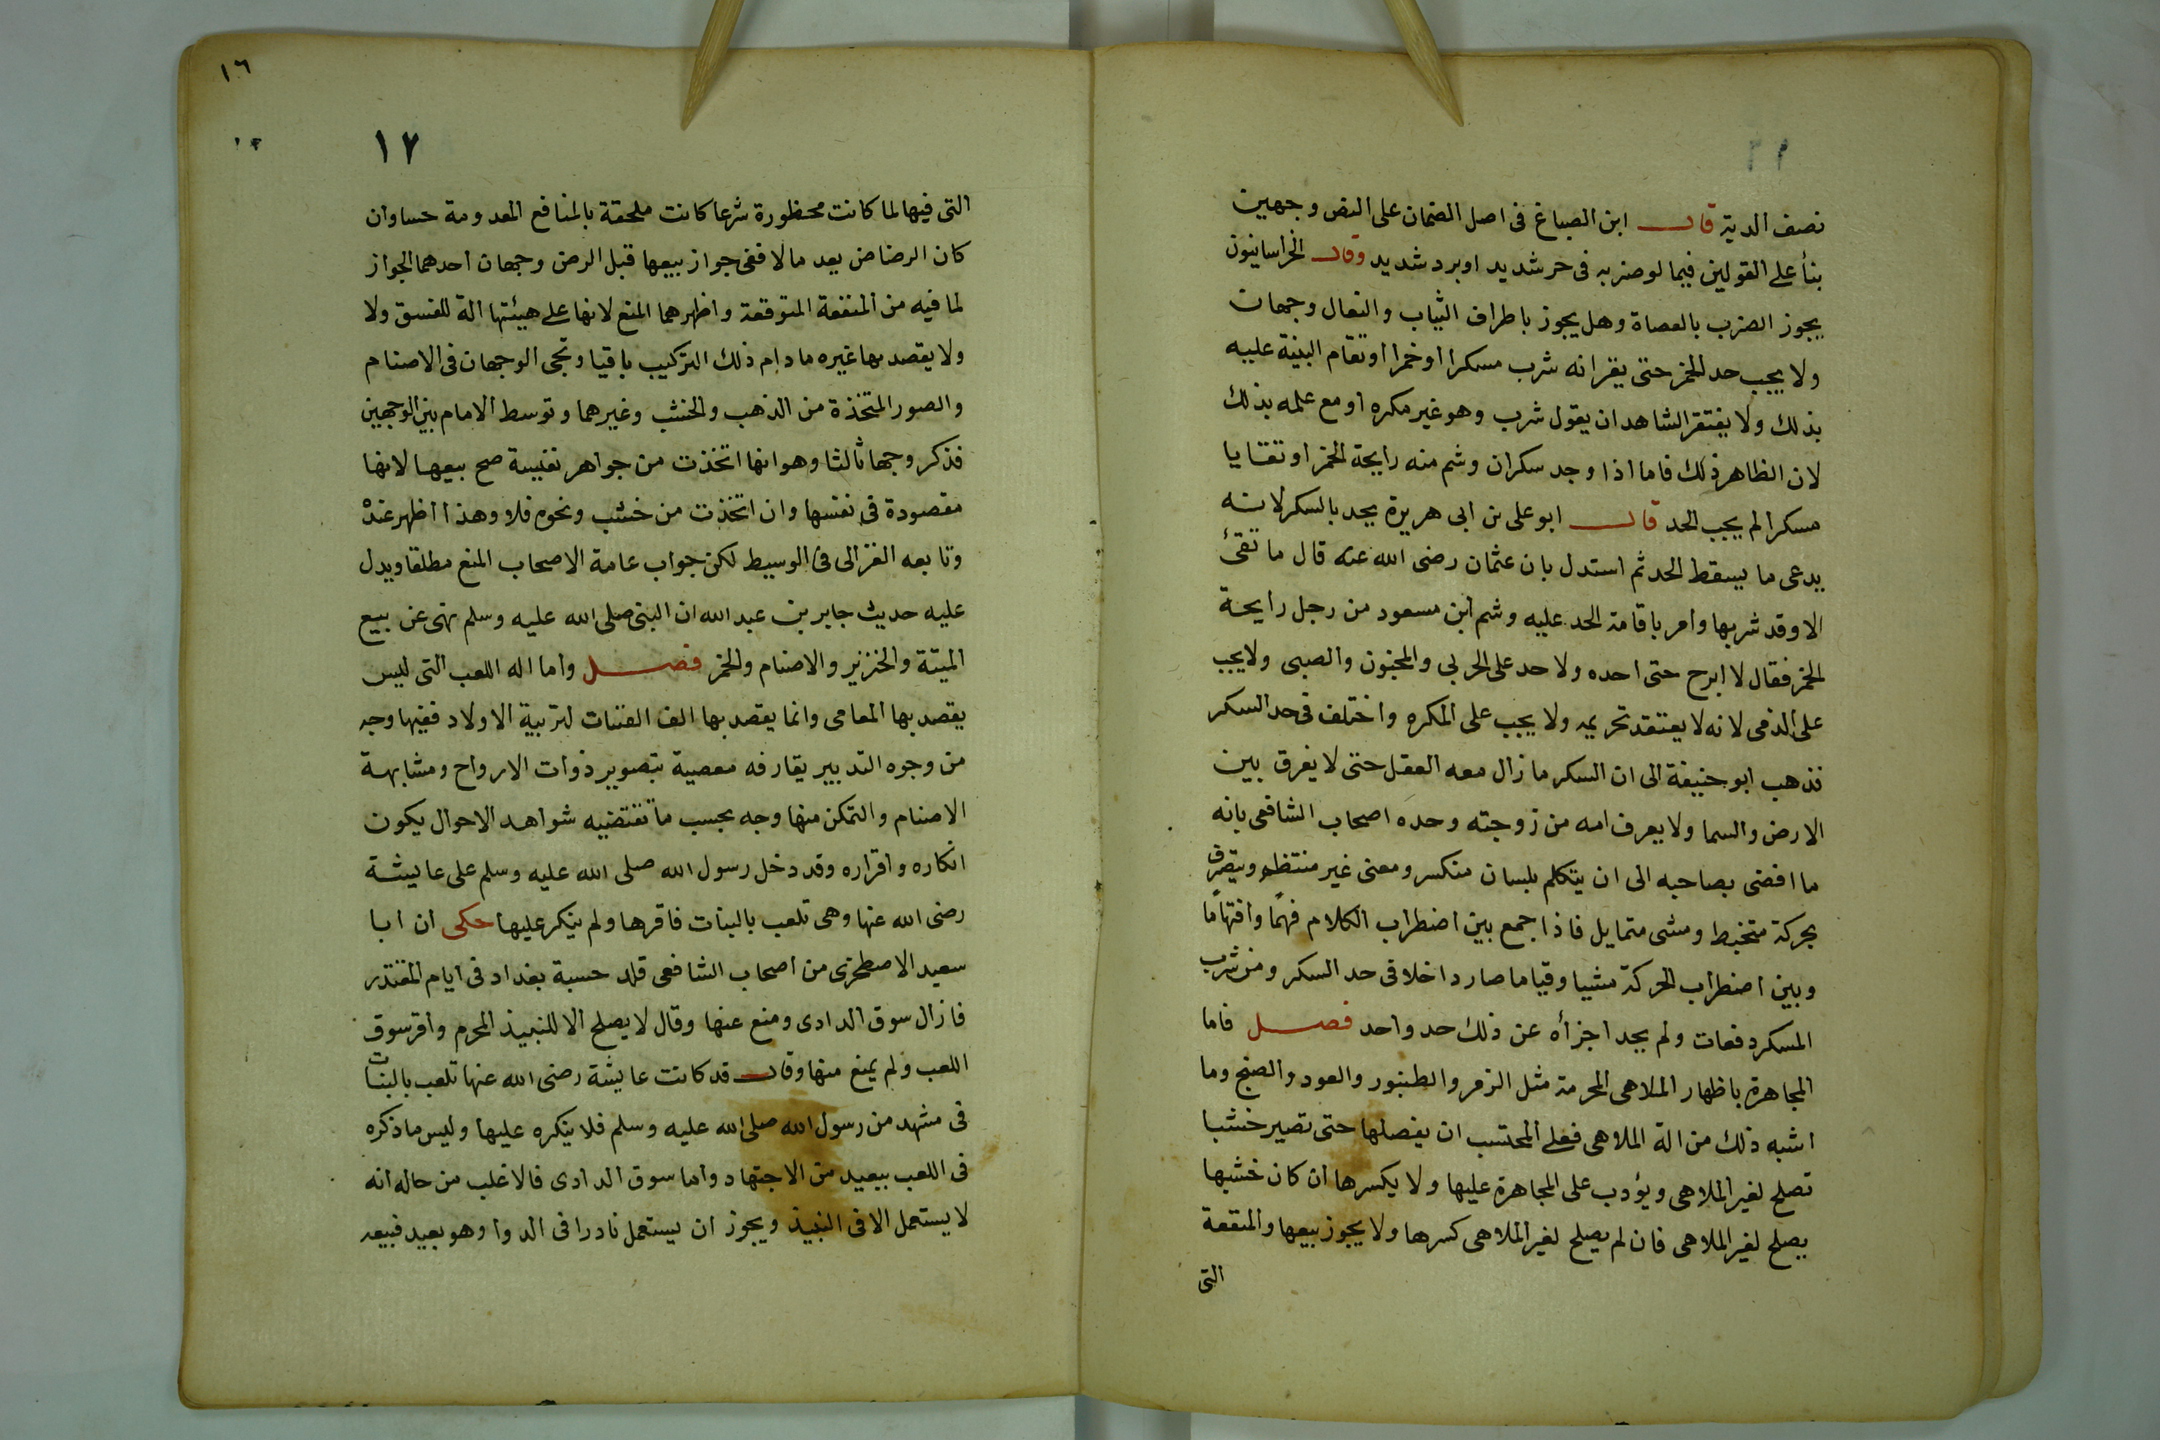 نصف الدية قال ابن الصباغ فى اصل الضمان على النص وجهين
بنأ على القولين فيما لو ضربه فى حر شديد او برد شديد وقال الخراسانيون
يجوز الضرب بالعصاة وهل يجوز باطراف الثياب والنعال وجهان
ولا يجب حد الخمر حتى يقر انه شرب مسكرا او خمرا او تقام البينة عليه
بذلك ولا يفتقر الشاهد ان يقول شرب وهو غير مكره او مع علمه بذلك
لان الظاهر ذلك فاما اذا وجد سكران وشم منه رايحة الخمر او تقايا
مسكرا لم يجب الحد قال ابو على بن ابى هريرة يحد بالسكر لانه
يدعى ما يسقط الحد ثم استدل بان عثمان رضى الله عنه قال ما تقئ
الا وقد شربها وامر باقامة الحد عليه وشم ابن مسعود من رجل رايحة
الخمر فقال لا ابرح حتى احده ولا حد على الحربى والمجنون والصبى ولا يجب
على الذمى لانه لا يعتقد تحريمه ولا يجب على المكره واختلف فى حد السكر
فذهب ابو حنيفة الى ان السكر ما زال معه العقل حتى لا يفرق بين
الارض والسما ولا يعرف امه من زوجته وحده اصحاب الشافعى بانه
ما افضى بصاحبه الى ان يتكلم بلسان منكسر ومعنى غير منتظم ويتصرف
بحركة متخبط ومشى متمايل فاذا جمع بين اضطراب الكلام فهمًا وافتهامًا
وبين اضطراب الحركة مشيا وقياما صار داخلا فى حد السكر ومن شرب
المسكر دفعات ولم يحد اجزأه عن ذلك حد واحد فصل فاما
المجاهرة باظهار الملاهى المحرمة مثل الزمر والطنبور والعود والصنج وما
اشبه ذلك من الة الملاهى فعلى المحتسب ان يفصلها حتى تصير خشبا
تصلح لغير الملاهى ويؤدب على المجاهرة عليها ولا يكسرها ان كان خشبها
يصلح لغير الملاهى فان لم يصلح لغير الملاهى كسرها ولا يجوز بيعها والمنفعة
التى
١٦
١٧
التى فيها لما كانت محظورة شرعا كانت ملحقة بالمنافع المعدومة حسا وان
كان الرضاض يعد مالا ففى جواز بيعها قبل الرض وجهان احدهما الجواز
لما فيه من المنفعة المتوقعة واظهرهما المنع لانها على هيئتها الة للفسق ولا
ولا يقصد بها غيره ما دام ذلك التركيب باقيا وتجى الوجهان فى الاصنام
والصور المتخذة من الذهب والخشب وغيرهما وتوسط الامام بين الوجهين
فذكر وجها ثالثا وهو انها اتخذت من جواهر نفيسة صح بيعها لانها
مقصودة فى نفسها وان اتخذت من خشب ونحوه فلا وهذا اظهر عنده
وتابعه الغزالى فى الوسيط لكن جواب عامة الاصحاب المنع مطلقا ويدل
عليه حديث جابر بن عبد الله ان النبى صلى الله عليه وسلم نهى عن بيع
الميتة والخنزير والاصنام والخمر فصل واما اله اللعب التى ليس
يقصد بها المعاصى وانما يقصد بها الف الفتنات لتربية الاولاد ففيها وجه
من وجوه التدبير يقارفه معصية بتصوير ذوات الارواح ومشابهة
الاصنام والتمكن منها وجه بحسب ما تقتضيه شواهد الاحوال يكون
انكاره واقراره وقد دخل رسول الله صلى الله عليه وسلم على عايشة
رضى الله عنها وهى تلعب بالبنات فاقرها ولم ينكر عليها حكى ان ابا
سعيد الاصطخرى من اصحاب الشافعى قلد حسبة بغداد فى ايام المقتدر
فازال سوق الدادى ومنع عنها وقال لا يصلح الا للنبيذ المحرم واقر سوق
اللعب ولم يمنع منها وقال قد كانت عايشة رضى الله عنها تلعب بالبنات
فى مشهد من رسول الله صلى الله عليه وسلم فلا ينكره عليها وليس ما ذكره
فى اللعب ببعيد من الاجتهاد واما سوق الدادى فالاغلب من حاله انه
لا يستعمل الا فى النبيذ ويجوز ان يستعمل نادرا فى الدوا وهو بعيد فبيعه